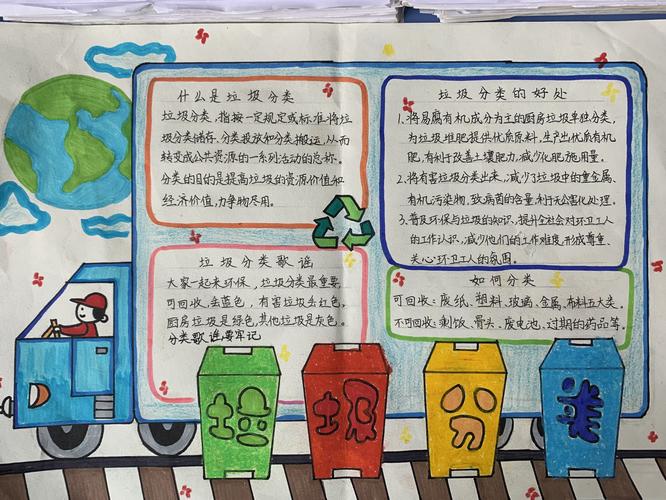 什么是垃圾分类
垃圾分类,指按一定规定或标准将垃
圾分类储存、分类投放和分类搬运,从而
转变成公共资源的一系列活动的总称。
分类的目的是提高垃圾的资源价值和
经济价值,力争物尽用。
垃圾分类歌谣
大家一起来环保,垃圾分类最重要,
可回收,去蓝色,有害垃圾去红色,
厨房垃圾是绿色,其他垃圾是灰色。
分类歌谣要牢记
垃圾分类的好处
1、将易腐有机成分为主的厨房垃圾单独分类,
为垃圾堆肥提供优质原料,生产出优质有机
肥,有利于改善土壤肥力,减少化肥施用量。
2、将有害垃圾分类出来,减少了垃圾中的重金属、
有机污染物、致病菌的含量,利于无公害化处理。
3、普及环保与垃圾的知识,提升全社会对环卫工人
的工作认识,减少他们的工作难度,形成尊重、
关心环卫工人的氛围。
如何分类
可回收:废纸、塑料、玻璃、金属、布料五大类。
不可回收:剩饭、骨头、废电池、过期的药品等。
垃 圾 分 类